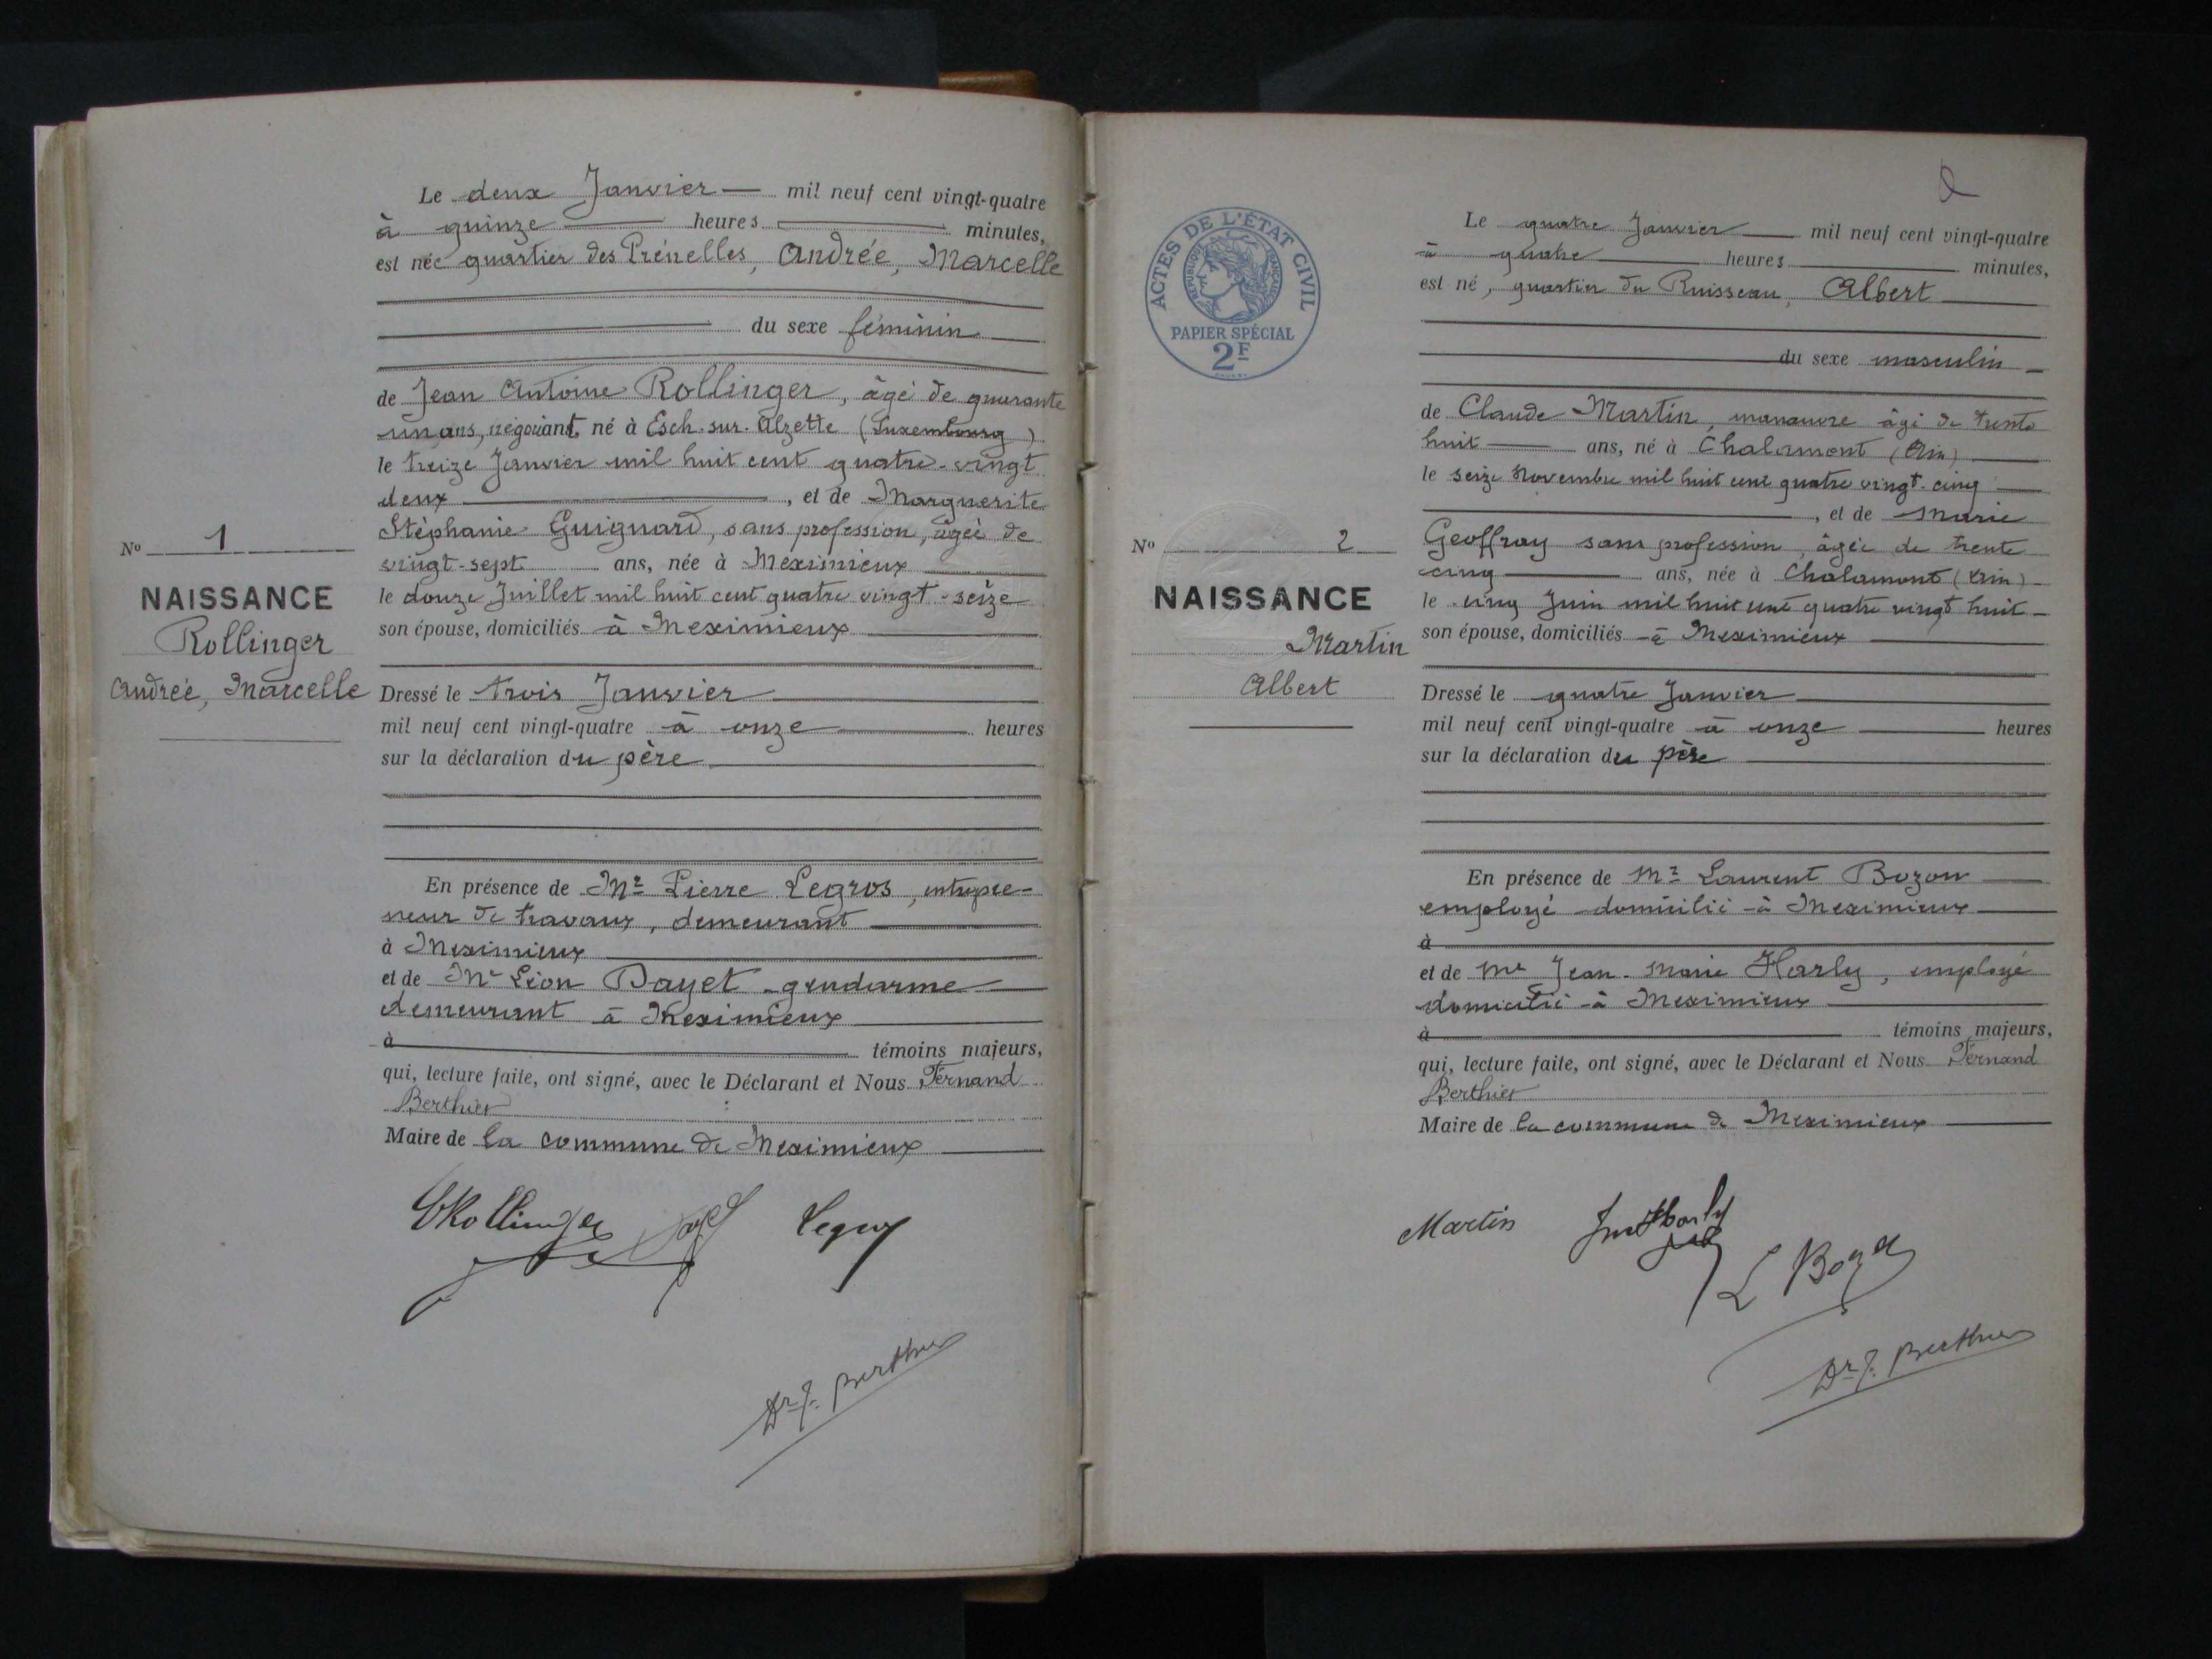 Le deux Janvier mil neuf cent vingt-quatre
à quinze heures minutes,
est née quartier des Prénelles, Andrée, Marcelle
du sexe féminin
de Jean Antoine Rollinger, âgé de quarante
un ans, négociant, né à Esch-sur-Alzette (Luxembourg)
le treize Janvier mil huit cent quatre-vingt
deux, et de Marguerite
Stéphanie Guignard, sans profession, âgée de
vingt-sept ans, née à Meximieux
le douze Juillet mil huit cent quatre vingt-seize
son épouse, domiciliés à Meximieux
No 1
NAISSANCE
Rollinger
Andrée, Marcelle
Dressé le trois Janvier
mil neuf cent vingt-quatre à onze heures
sur la déclaration du père
En présence de Mr Pierre Legros, entrepre-
neur de travaux, demeurant
à Meximieux
et de Mr Léon Dayet gendarme
demeurant à Meximieux
à témoins majeurs,
qui, lecture faite, ont signé, avec le Déclarant et Nous Fernand
Berthier
Maire de la commune de Meximieux
Rollinger Legros
Dr F. Berthier
2
ACTES DE L'ÉTAT CIVIL
RÉPUBLIQUE FRANÇAISE
PAPIER SPÉCIAL
2F
Le quatre Janvier mil neuf cent vingt-quatre
à quatre heures minutes,
est né, quartier du Ruisseau, Albert
du sexe masculin
de Claude Martin, manœuvre âgé de trente
huit ans, né à Chalamont (Ain)
le seize Novembre mil huit cent quatre vingt-cinq
, et de Marie
Geoffray sans profession, âgée de trente
cinq ans, née à Chalamont (Ain)
le cinq Juin mil huit cent quatre vingt huit
son épouse, domiciliés à Meximieux
No 2
NAISSANCE
Martin
Albert
Dressé le quatre Janvier
mil neuf cent vingt-quatre à onze heures
sur la déclaration du père
En présence de Mr Laurent Bozon
employé domicilié à Meximieux
à
et de Mr Jean-Marie Harly, employé
domicilié à Meximieux
à témoins majeurs,
qui, lecture faite, ont signé, avec le Déclarant et Nous Fernand
Berthier
Maire de la commune de Meximieux
Martin Harly
L Bozon
Dr F. Berthier